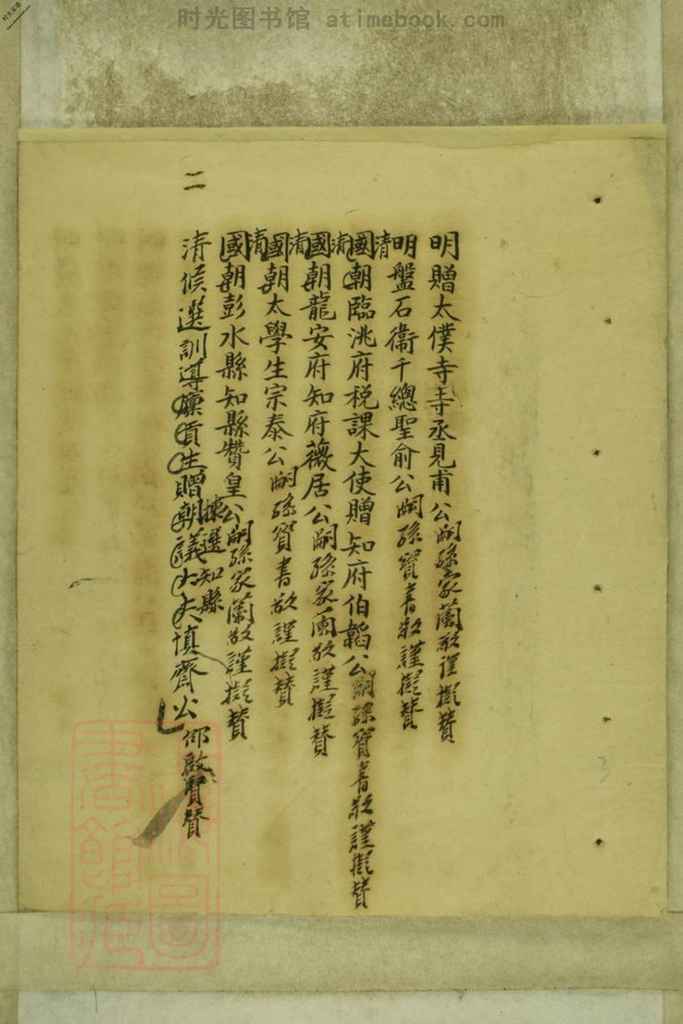 时光图书馆 atimebook.com
二
明贈太僕寺寺丞見甫公嗣孫家蘭敬謹擬贊
明盤石衛千總聖俞公嗣孫寶書敬謹擬贊
清國朝臨洮府税課大使贈知府伯韜公嗣孫寶書敬謹擬贊
清國朝龍安府知府薇居公嗣孫家禹敬謹擬贊
清國朝太學生宗泰公嗣孫寶書敬謹擬贊
清國朝彭水縣知縣贊皇公嗣孫家蘭敬謹擬贊
清候選訓導廪貢生贈朝議大夫慎齋公
揀選知縣